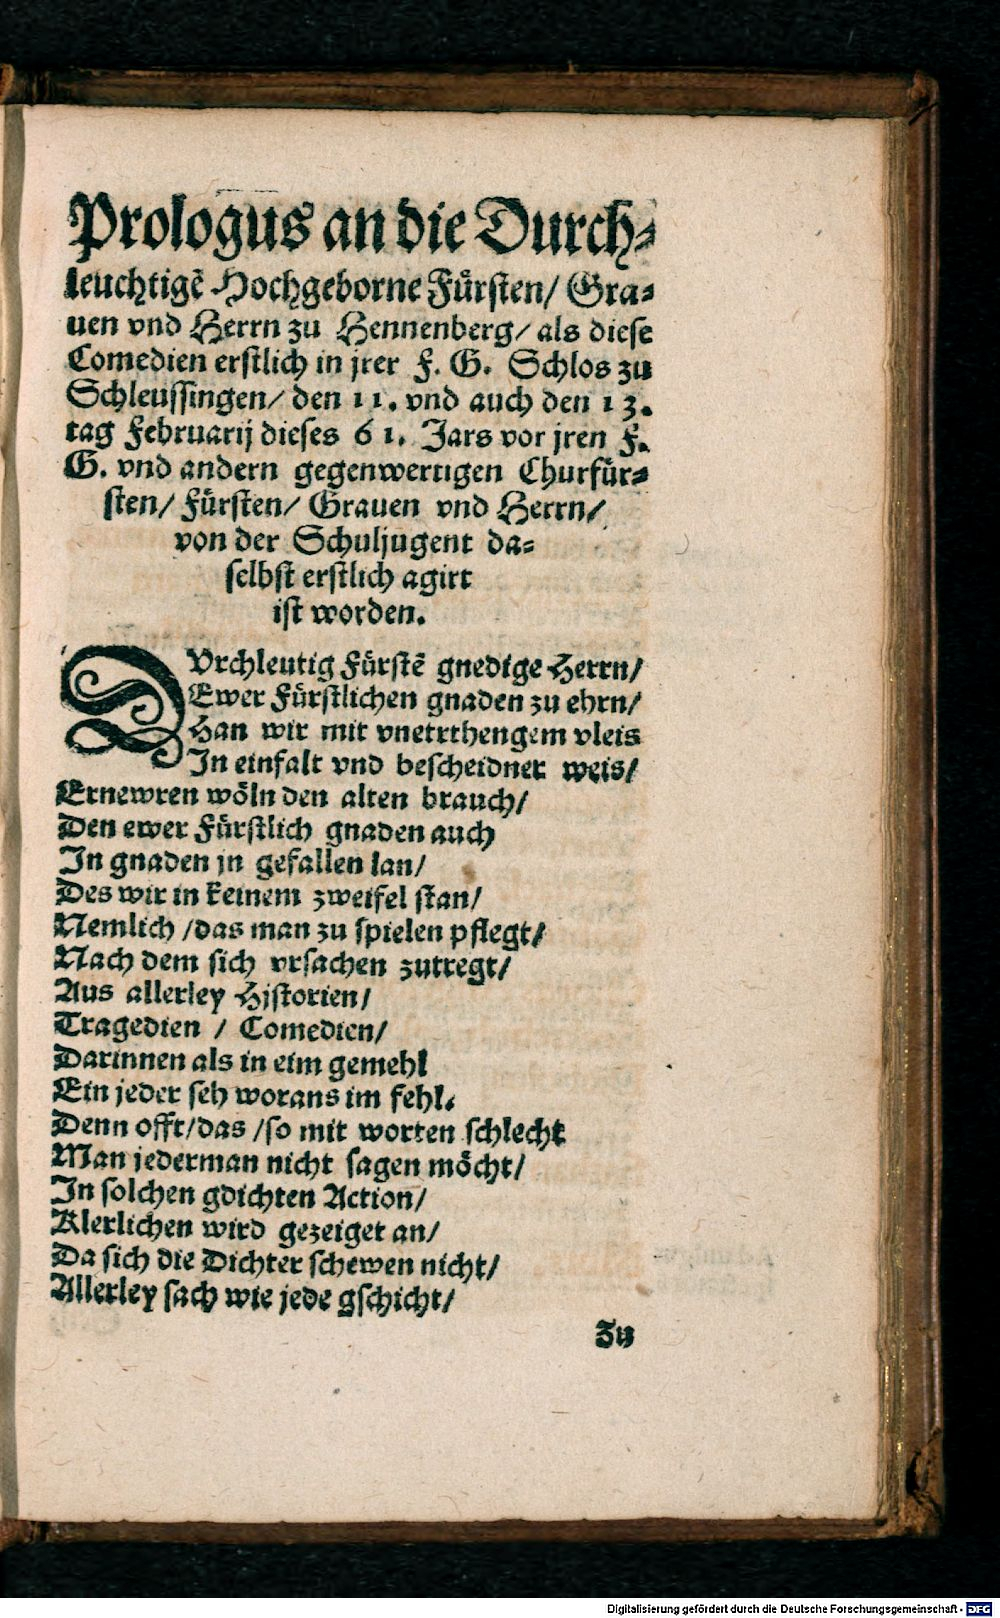 Prologus an die Durch⸗
leuchtigẽ Hochgeborne Fürsten/ Gra⸗
uen vnd Herrn zu Hennenberg/ als diese
Comedien erstlich in jrer F. G. Schlos zu
Schleussingen/ den 11. vnd auch den 13.
tag Februarij dieses 61. Jars vor jren F.
G. vnd andern gegenwertigen Churfür⸗
sten/ Fürsten/ Grauen vnd Herrn/
von der Schuljugent da⸗
selbst erstlich agirt
ist worden.
DVrchleutig Fürstẽ gnedige Herrn/
Ewer Fürstlichen gnaden zu ehrn/
Han wir mit vnetrthengem vleis
In einfalt vnd bescheidner weis/
Ernewren wöln den alten brauch/
Den ewer Fürstlich gnaden auch
In gnaden jn gefallen lan/
Des wir in keinem zweifel stan/
Nemlich /das man zu spielen pflegt/
Nach dem sich vrsachen zutregt/
Aus allerley Hjstorien/
Tragedien / Comedien/
Darinnen als in eim gemehl
Ein jeder seh worans im fehl.
Denn offt/das /so mit worten schlecht
Man jederman nicht sagen möcht/
In solchen gdichten Action/
Klerlichen wird gezeiget an/
Da sich die Dichter schewen nicht/
Allerley sach wie jede gschicht/
Zu
Digitalisierung gefördert durch die Deutsche Forschungsgemeinschaft - DFG